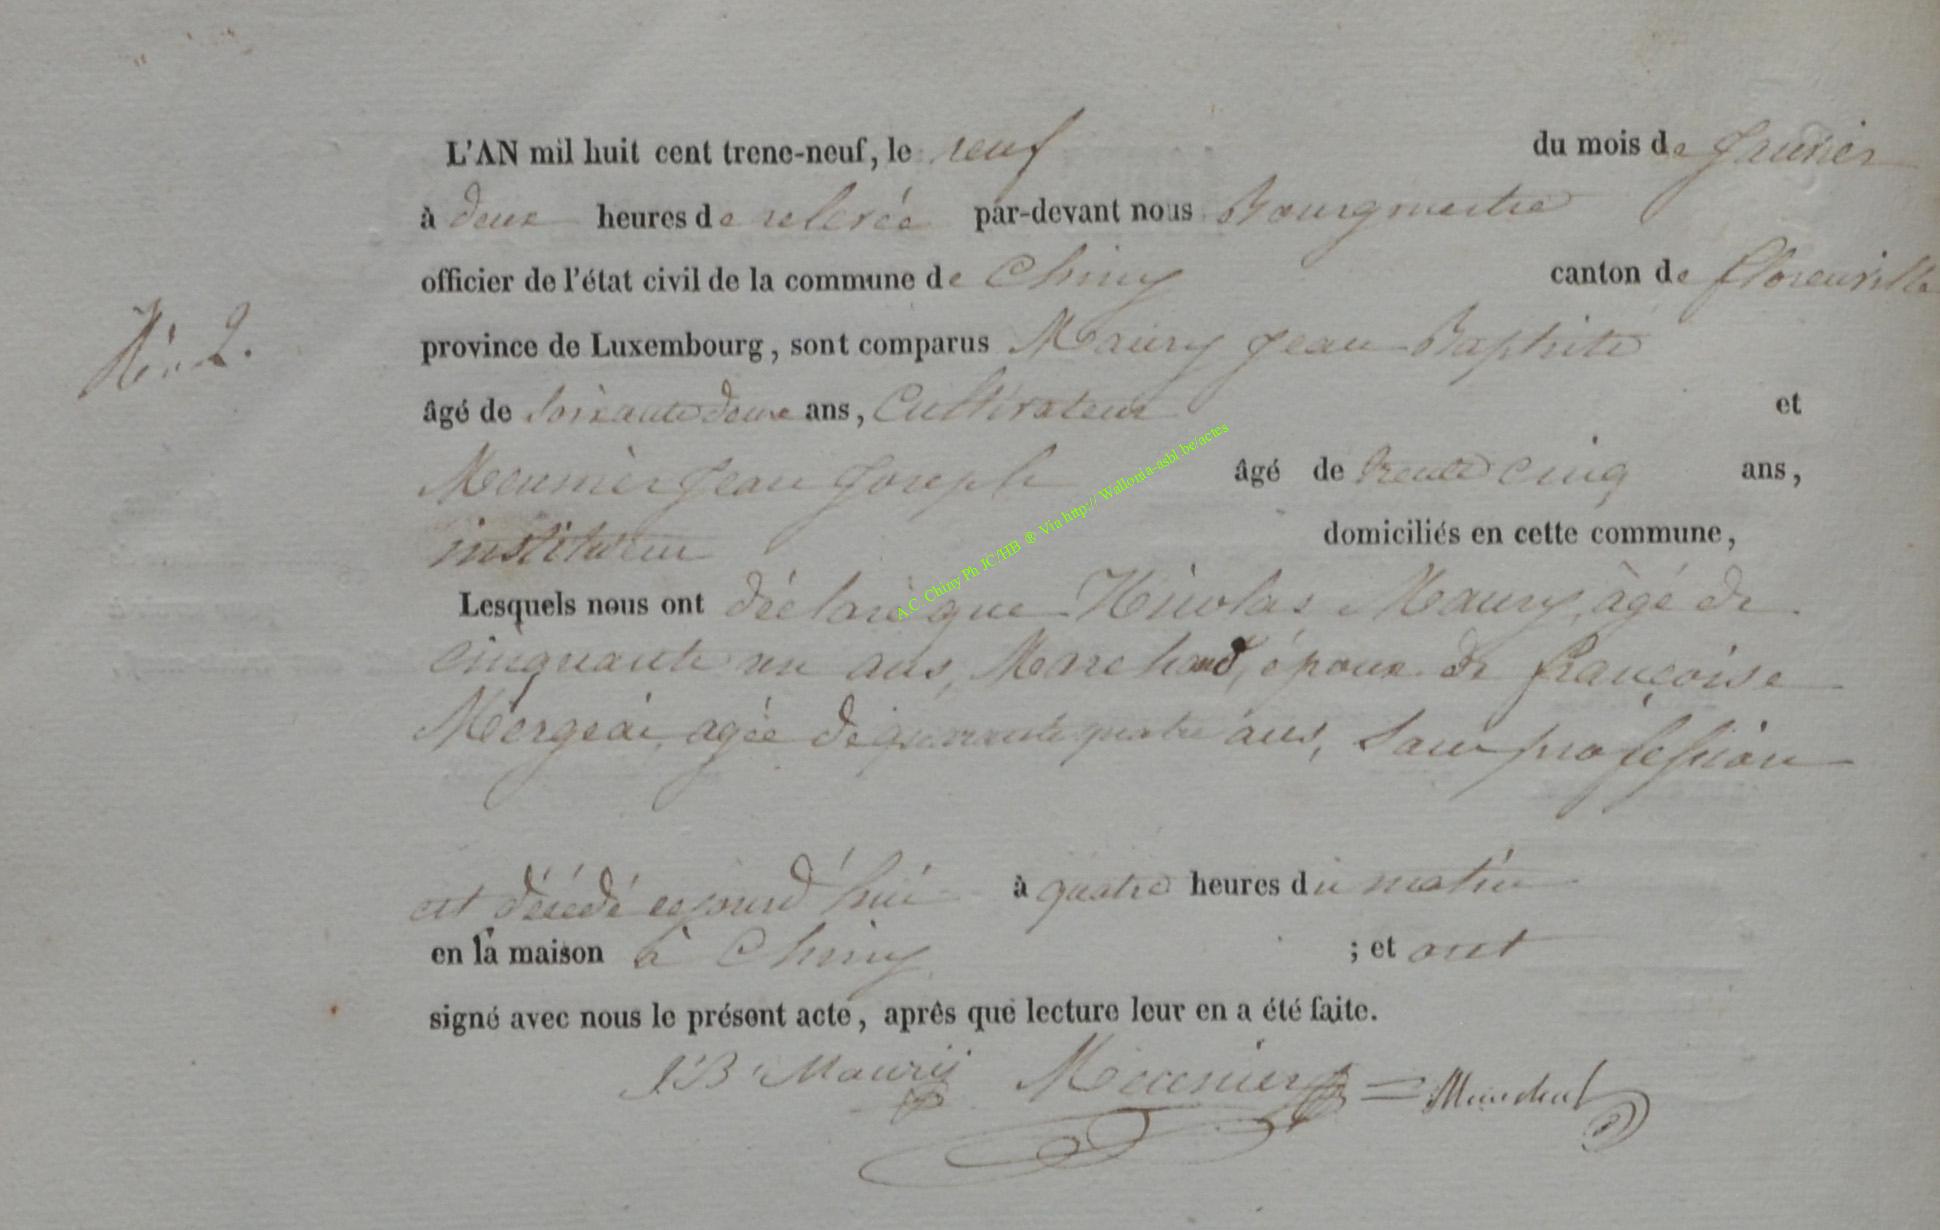 L'AN mil huit cent trene-neuf, le neuf du mois de Janvier
à deux heures de relevée par-devant nous Bourgmestre
officier de l'état civil de la commune de Chiny canton de florenville
N.° 2.
province de Luxembourg, sont comparus Maury Jean Baptiste
âgé de soixante deux ans, Cultivateur et
Meunier Jean Joseph âgé de trente cinq ans,
instituteur domiciliés en cette commune,
Lesquels nous ont déclaré que Nicolas Maury, âgé de
cinquante un ans, Marchand, époux de françoise
Mergeai, agée de quarante quatre ans, sans profession
est décédé cejourd'hui à quatre heures du matin
en la maison à Chiny ; et ont
signé avec nous le présent acte, après que lecture leur en a été faite.
JB Maury Meunier
A.C. Chiny Ph JC/HB ® Via http:// Wallonia-asbl.be/actes